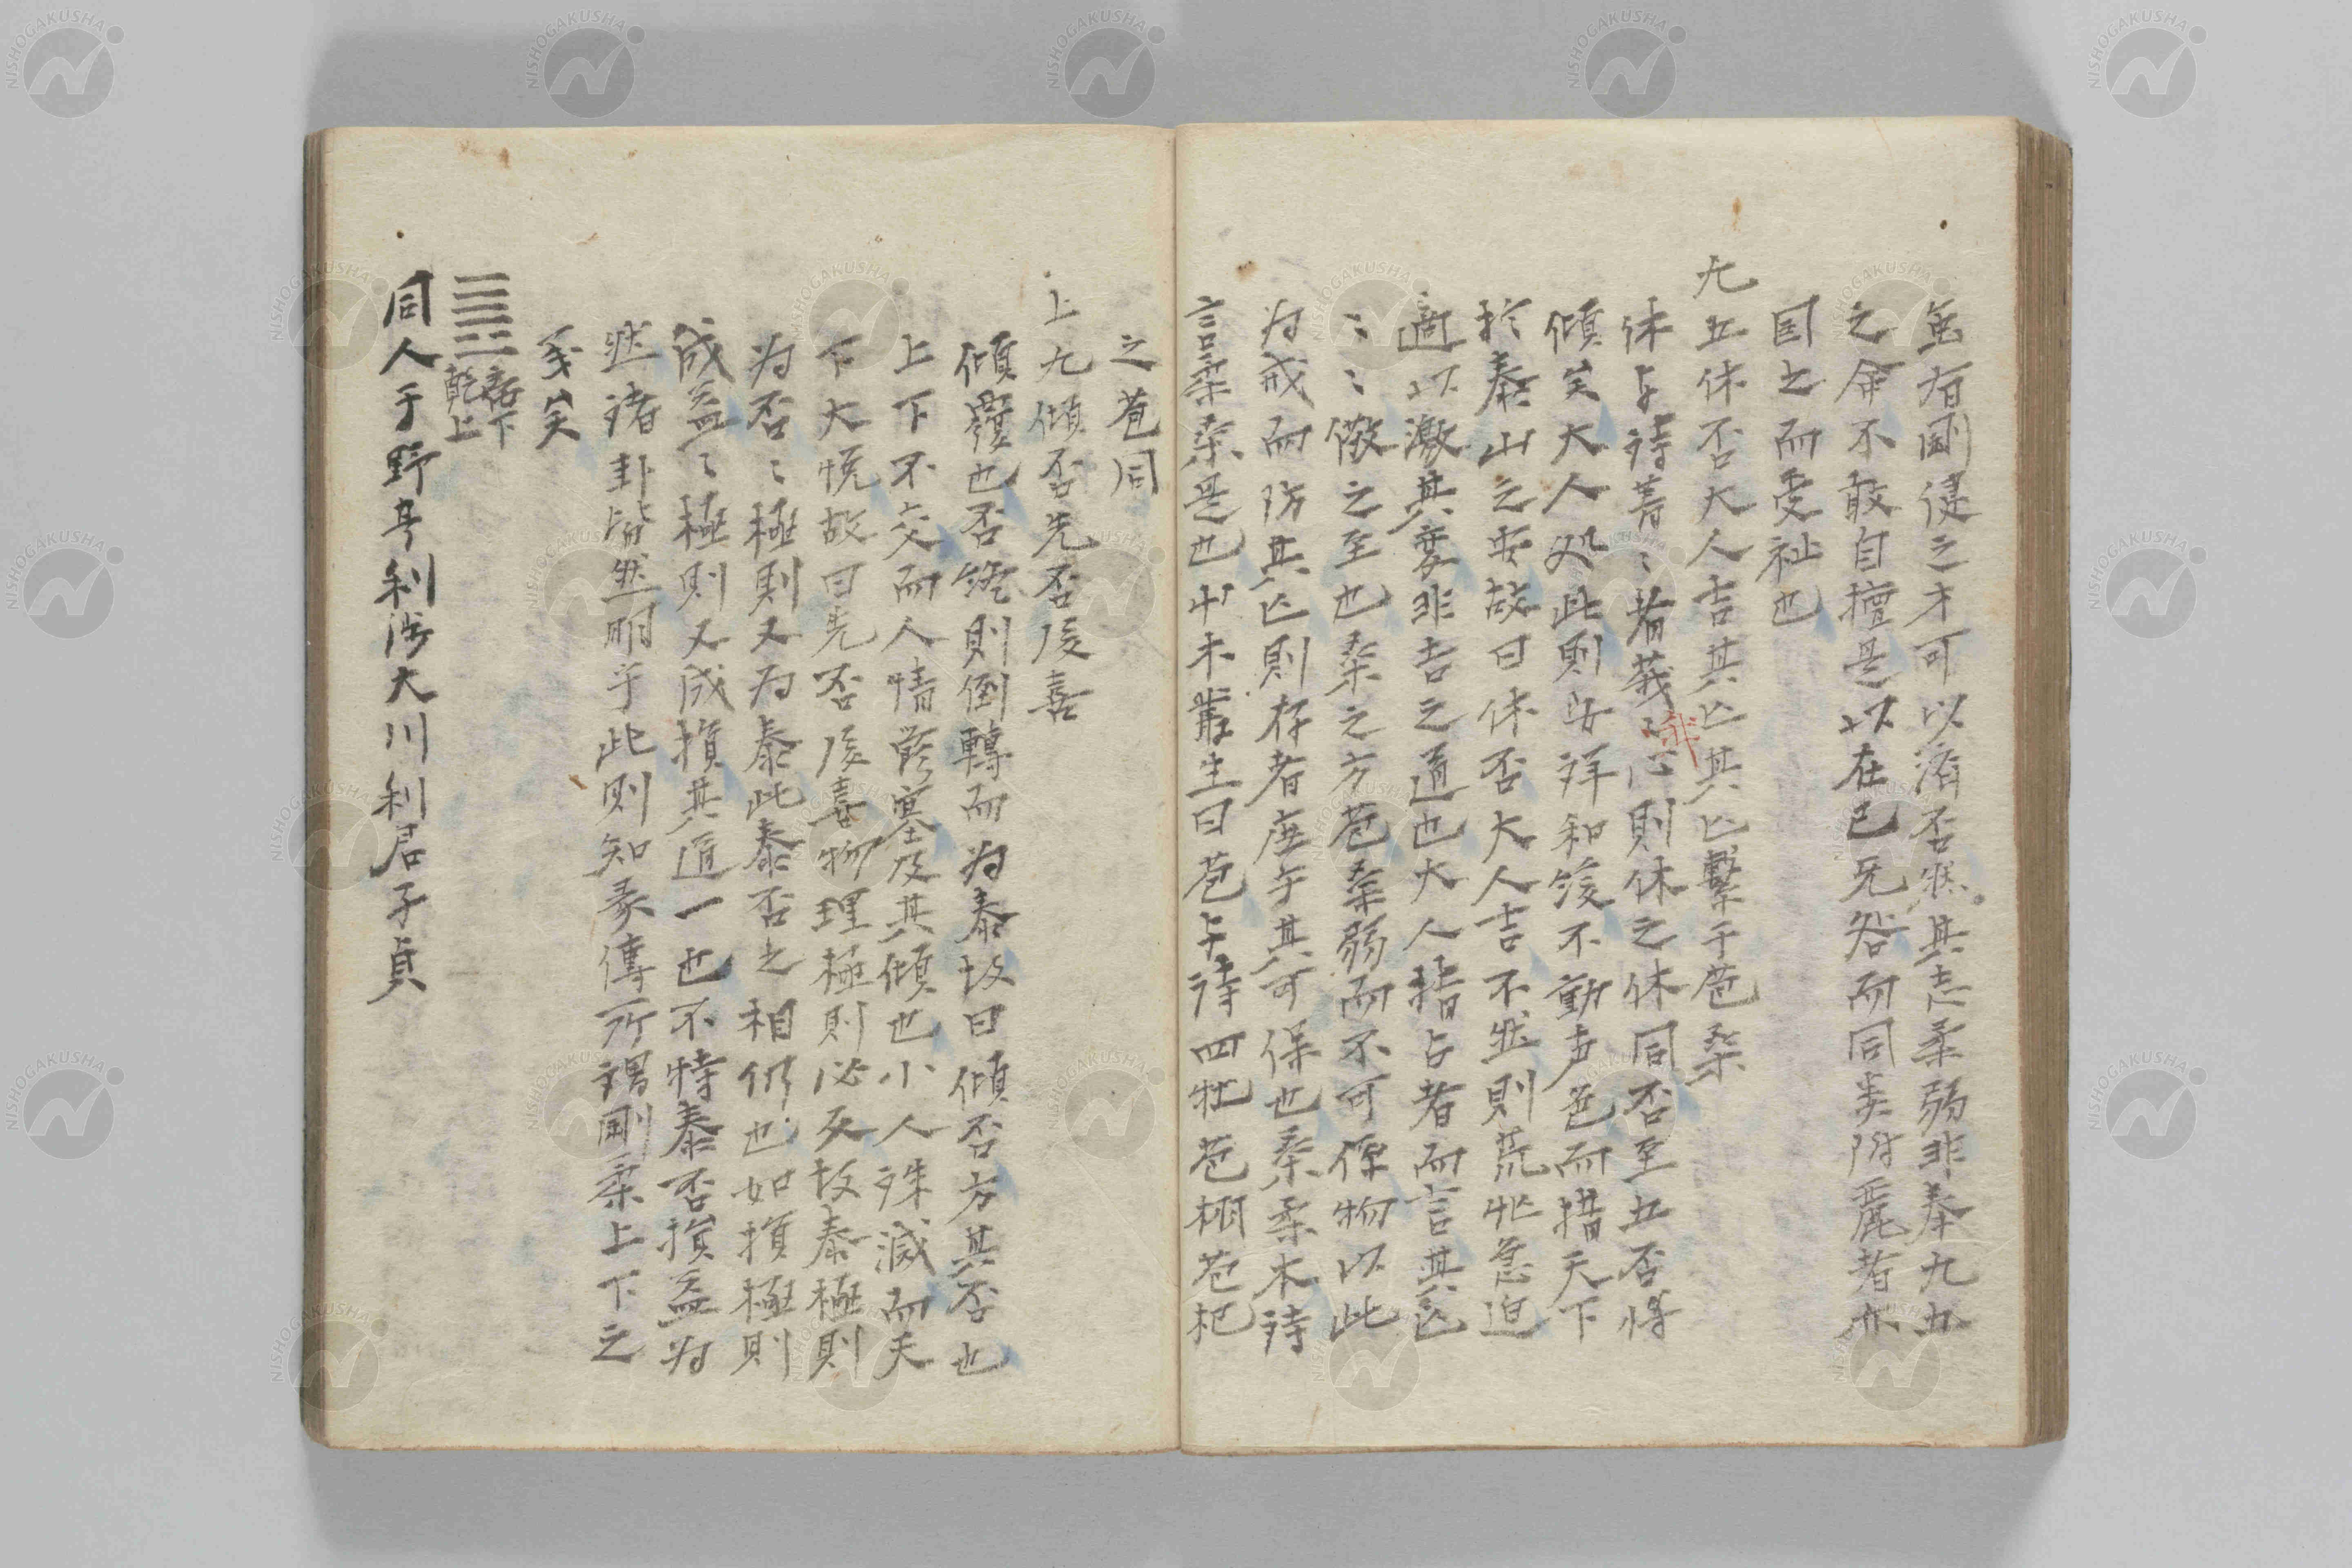 虽有剛健之才可以済否然其志柔弱非奉九五
之命不敢自擅是以在己无咎而同类附麗者亦
国之而受祉也
九五休否大人吉其亡其亡繫于苞桒
休与詩菁〻者莪心則休之休同否至五否将
傾矣大人処此則安詳和緩不動声色而措天下
於泰山之安故曰休否大人吉不然則荒忙急迫
適以激其変非吉之道也大人指占者而言其亡
〻〻儆之至也桒之方苞柔弱而不可係物以此
为戒而防其亡則存者庶乎其可保也桒柔木詩
言柔桒是也艸木叢生曰苞与詩四牡苞栩苞杞
之苞同
上九傾否先否後喜
傾覆也否終則倒轉而为泰故曰傾否方其否也
上下不交而人情欝塞及其傾也小人殊滅而天
下大悅故曰先否後喜物理極則必反故泰極則
为否〻極則又为泰此泰否之相仍也如損極則
成益〻極則又成損其道一也不特泰否損益为
然諸卦皆然明乎此則知彖傳所謂剛柔上下之
矣
離下
乾上
同人于野亨利渉大川利君子貞
NISHOGAKUSHA